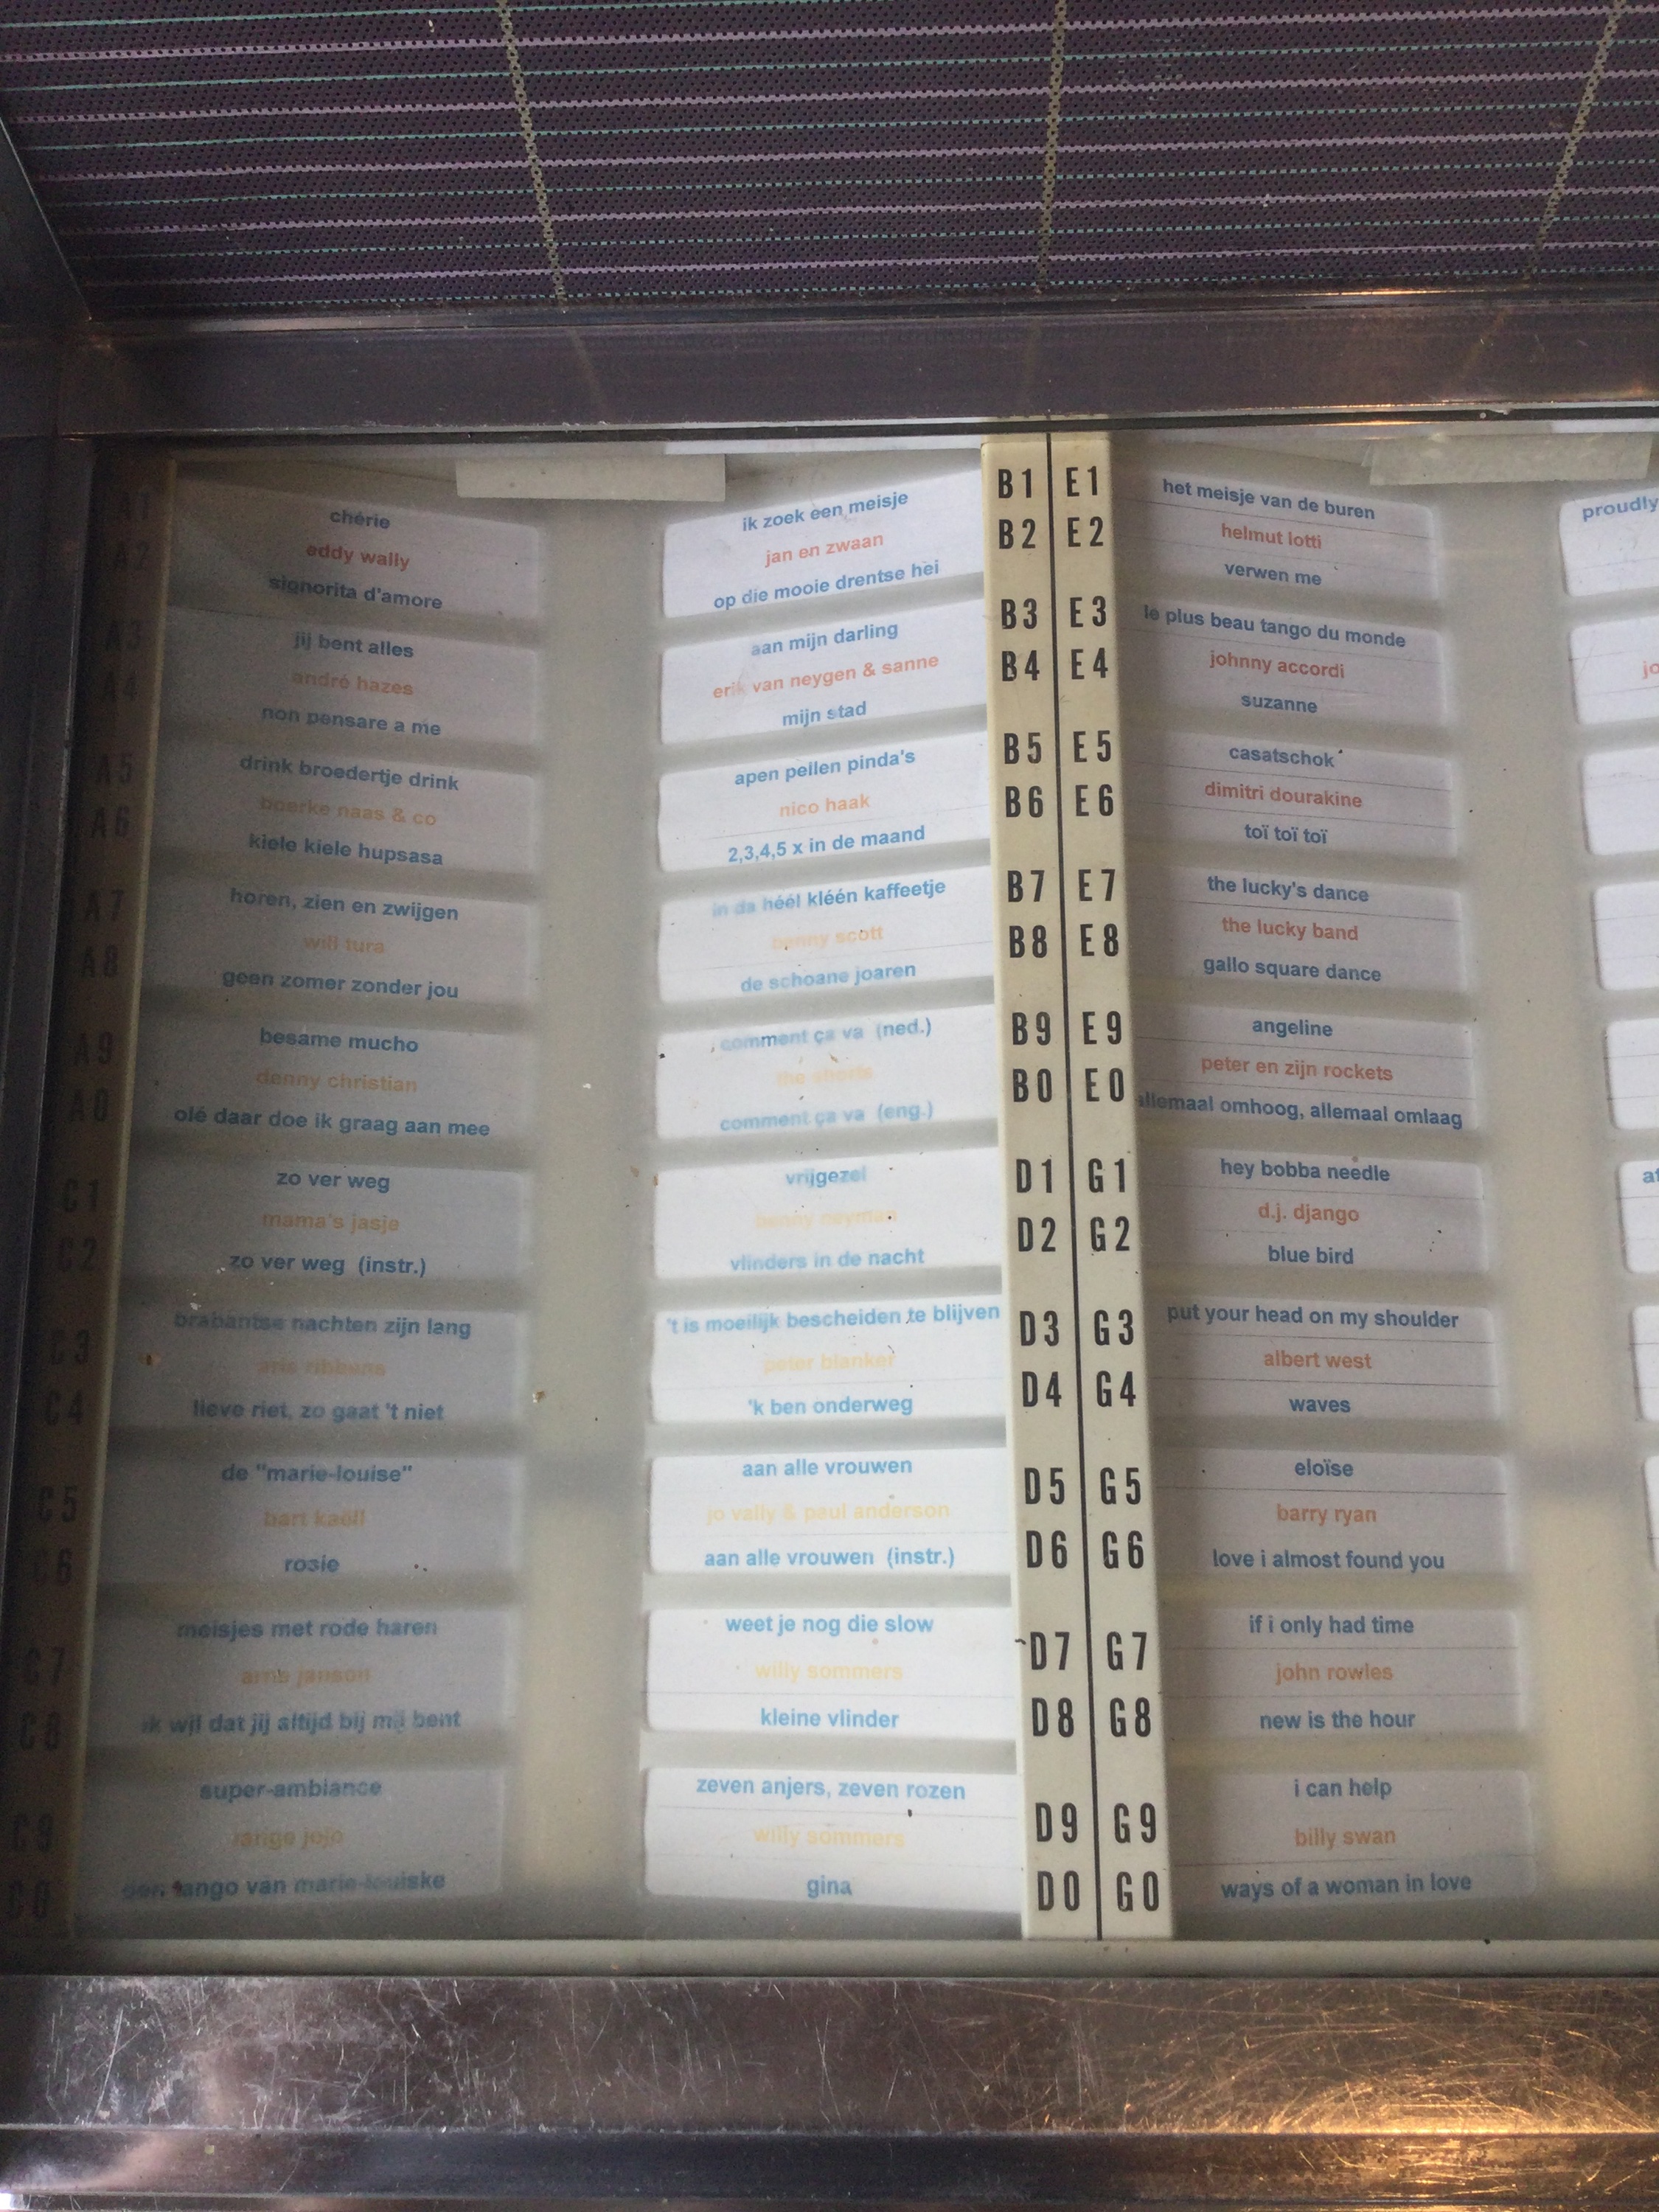 A1
A2
chérie
eddy wally
signorita d'amore
A3
A4
jij bent alles
andré hazes
non pensare a me
A5
A6
drink broedertje drink
boerke naas & co
kiele kiele hupsasa
A7
A8
horen, zien en zwijgen
will tura
geen zomer zonder jou
A9
A0
besame mucho
denny christian
olé daar doe ik graag aan mee
C1
C2
zo ver weg
mama's jasje
zo ver weg (instr.)
C3
C4
brabantse nachten zijn lang
arie ribbens
lieve riet, zo gaat 't niet
C5
C6
de "marie-louise"
bart kaëll
rosie
C7
C8
meisjes met rode haren
arne jansen
ik wil dat jij altijd bij mij bent
C9
C0
super-ambiance
lange jojo
den tango van marie-louiske
ik zoek een meisje
jan en zwaan
op die mooie drentse hei
B1
B2
aan mijn darling
erik van neygen & sanne
mijn stad
B3
B4
apen pellen pinda's
nico haak
2,3,4,5 x in de maand
B5
B6
in da héél kléén kaffeetje
benny scott
de schoane joaren
B7
B8
comment ça va (ned.)
the shorts
comment ça va (eng.)
B9
B0
vrijgezel
benny neyman
vlinders in de nacht
D1
D2
't is moeilijk bescheiden te blijven
peter blanker
'k ben onderweg
D3
D4
aan alle vrouwen
jo vally & paul anderson
aan alle vrouwen (instr.)
D5
D6
weet je nog die slow
willy sommers
kleine vlinder
D7
D8
zeven anjers, zeven rozen
willy sommers
gina
D9
D0
E1
E2
het meisje van de buren
helmut lotti
verwen me
E3
E4
le plus beau tango du monde
johnny accordi
suzanne
E5
E6
casatschok
dimitri dourakine
toï toï toï
E7
E8
the lucky's dance
the lucky band
gallo square dance
E9
E0
angeline
peter en zijn rockets
allemaal omhoog, allemaal omlaag
G1
G2
hey bobba needle
d.j. django
blue bird
G3
G4
put your head on my shoulder
albert west
waves
G5
G6
eloïse
barry ryan
love i almost found you
G7
G8
if i only had time
john rowles
new is the hour
G9
G0
i can help
billy swan
ways of a woman in love
proudly